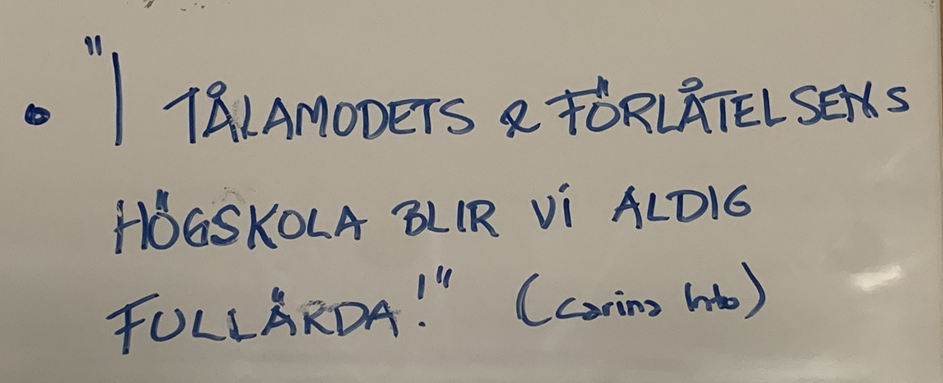 • "I TÅLAMODETS & FÖRLÅTELSENS
HÖGSKOLA BLIR VI ALDIG
FULLÄRDA!" (Carina